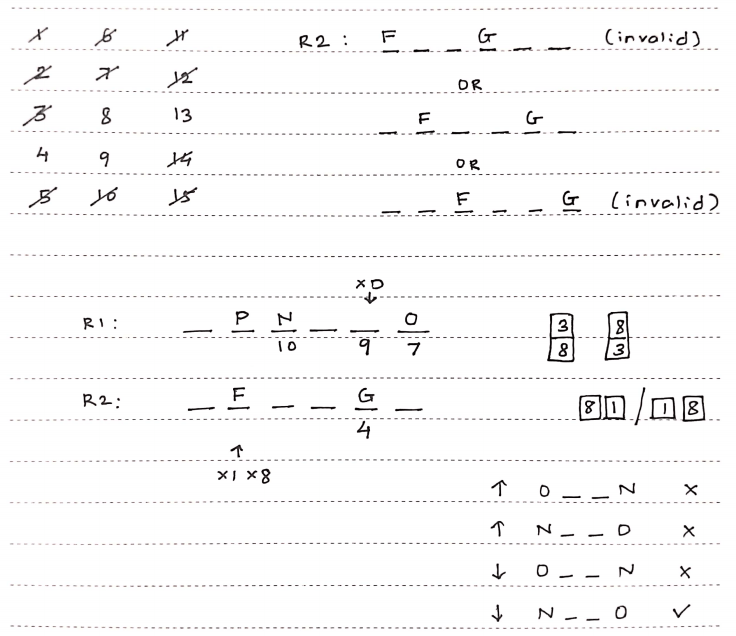 1 6 11 R2 : F _ _ G _ _ (invalid)
2 7 12 OR
3 8 13 _ F _ _ G _
4 9 14 OR
5 10 15 _ _ F _ _ G (invalid)
×D
↓
R1 : _ P N _ _ O 3 8
10 9 7 8 3
R2: _ F _ _ G _ 8 1 / 1 8
4
↑
×1 ×8
↑ O _ _ N ×
↑ N _ _ O ×
↓ O _ _ N ×
↓ N _ _ O ✓